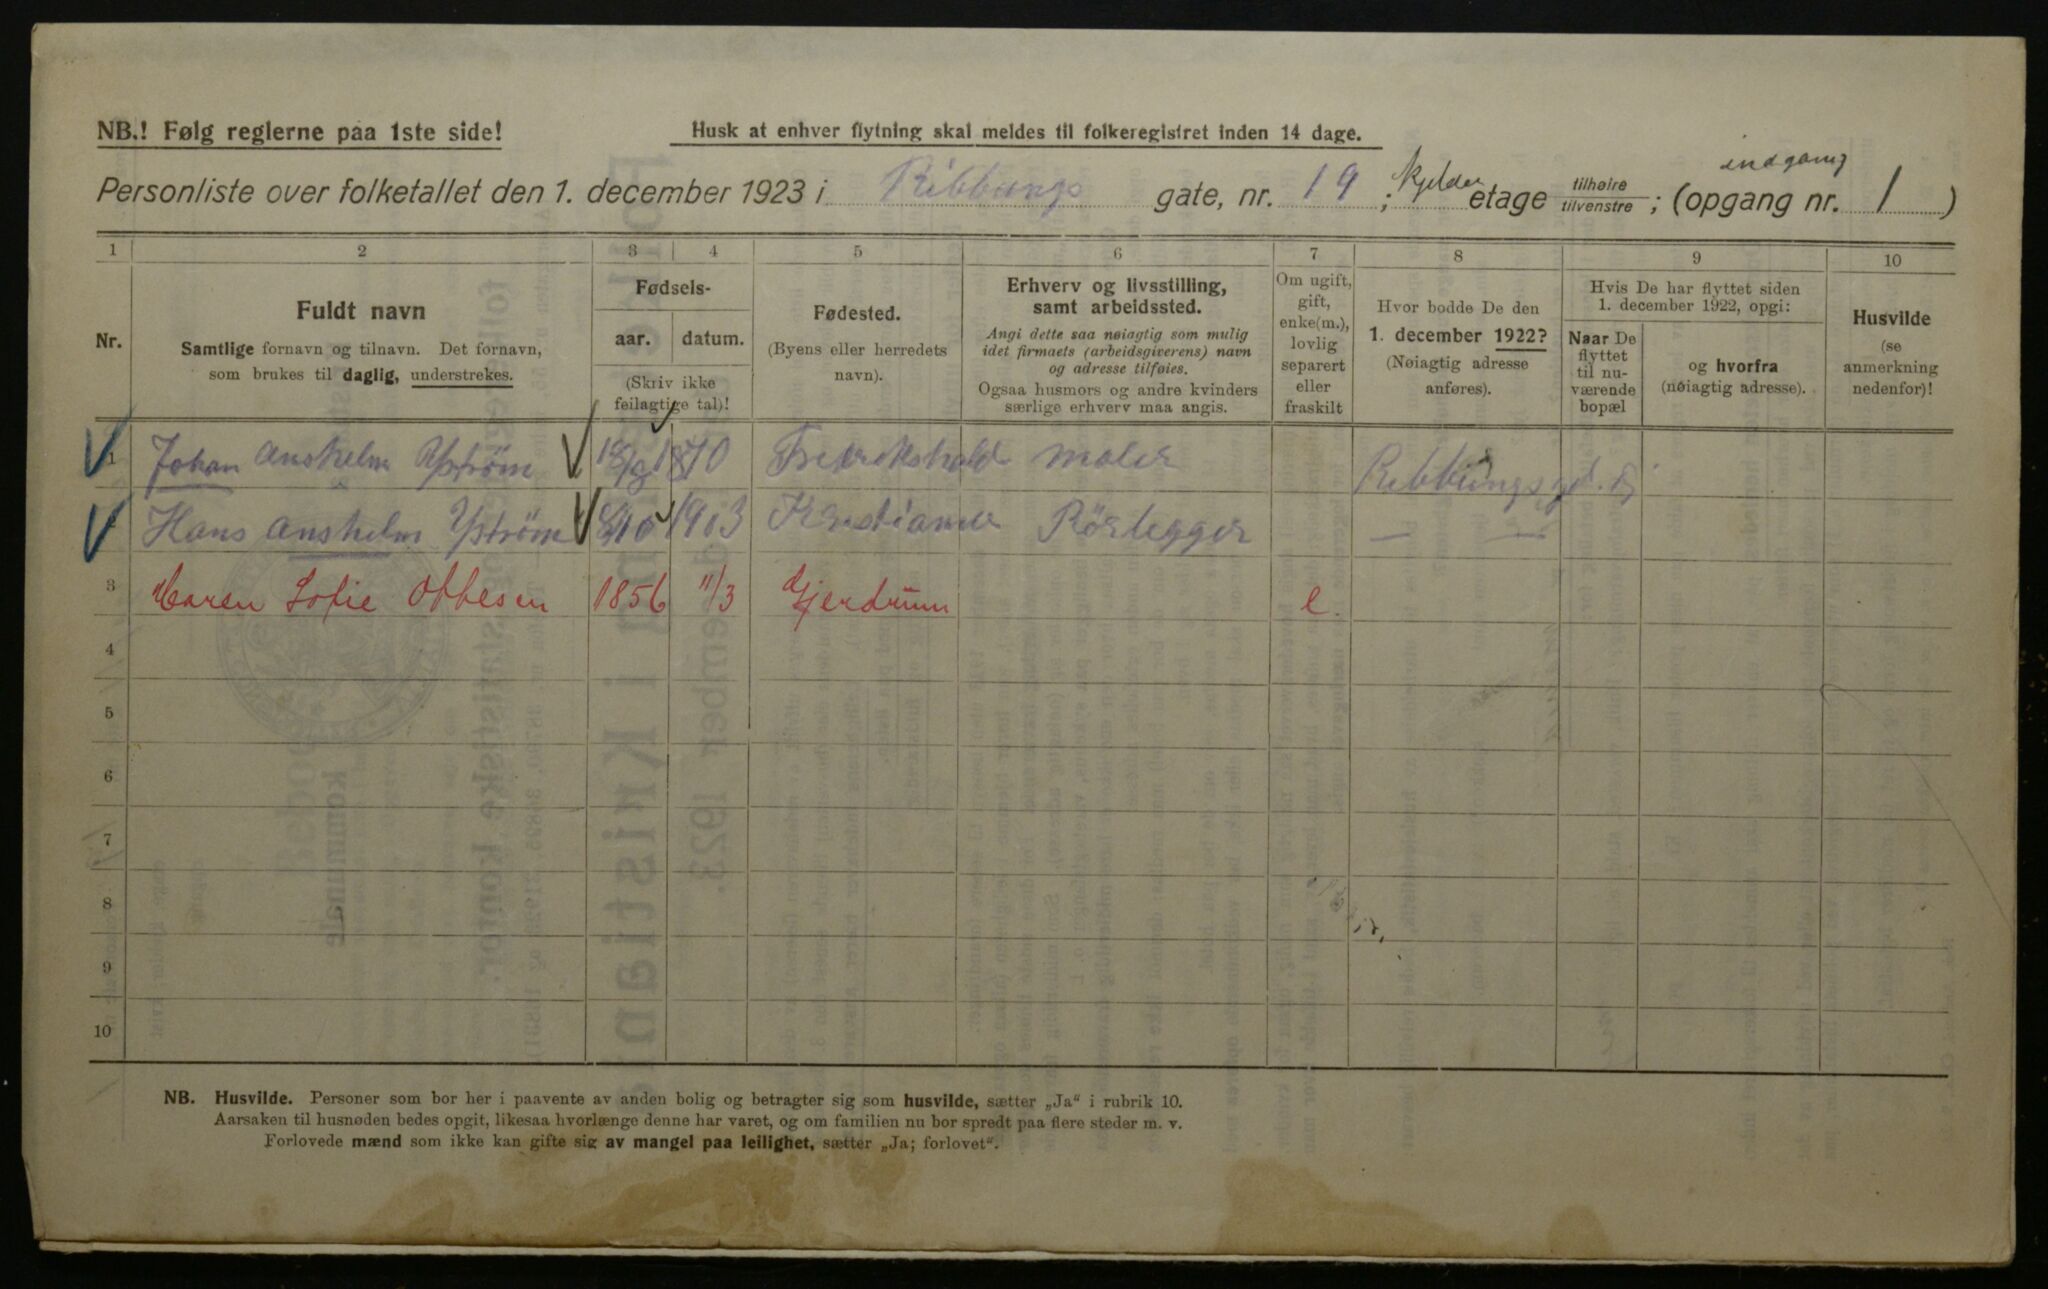 NB.! Følg reglerne paa 1ste side!
Husk at enhver flytning skal meldes til folkeregistret inden 14 dage.
indgang
Personliste over folketallet den 1. december 1923 i Ribbungs gate, nr. 19; kjelder etage tilhøire tilvenstre; (opgang nr. 1)
1 2 3 4 5 6 7 8 9 10
Nr.
Fuldt navn
Samtlige fornavn og tilnavn. Det fornavn,
som brukes til daglig, understrekes.
Fødsels-
aar. datum.
(Skriv ikke
feilagtige tal)!
Fødested.
(Byens eller herredets
navn).
Erhverv og livsstilling,
samt arbeidssted.
Angi dette saa nøiagtig som mulig
idet firmaets (arbeidsgiverens) navn
og adresse tilføies.
Ogsaa husmors og andre kvinders
særlige erhverv maa angis.
Om ugift,
gift,
enke(m.),
lovlig
separert
eller
fraskilt
Hvor bodde De den
1. december 1922?
(Nøiagtig adresse
anføres).
Hvis De har flyttet siden
1. december 1922, opgi:
Naar De
flyttet
til nu-
værende
bopæl
og hvorfra
(nøiagtig adresse).
Husvilde
(se
anmerkning
nedenfor)!
1 Johan Anshelm Yström 1870 Fredrikshald Maler Ribbungsgd.
Hans Anshelm Yström 1903 Rörlegger — —
3 Maren Sofie Obbesen 1856 11/3 Gjerdrum e.
4
5
6
7
8
9
10
NB. Husvilde. Personer som bor her i paavente av anden bolig og betragter sig som husvilde, sætter „Ja“ i rubrik 10.
Aarsaken til husnøden bedes opgit, likesaa hvorlænge denne har varet, og om familien nu bor spredt paa flere steder m. v.
Forlovede mænd som ikke kan gifte sig av mangel paa leilighet, sætter „Ja; forlovet“.